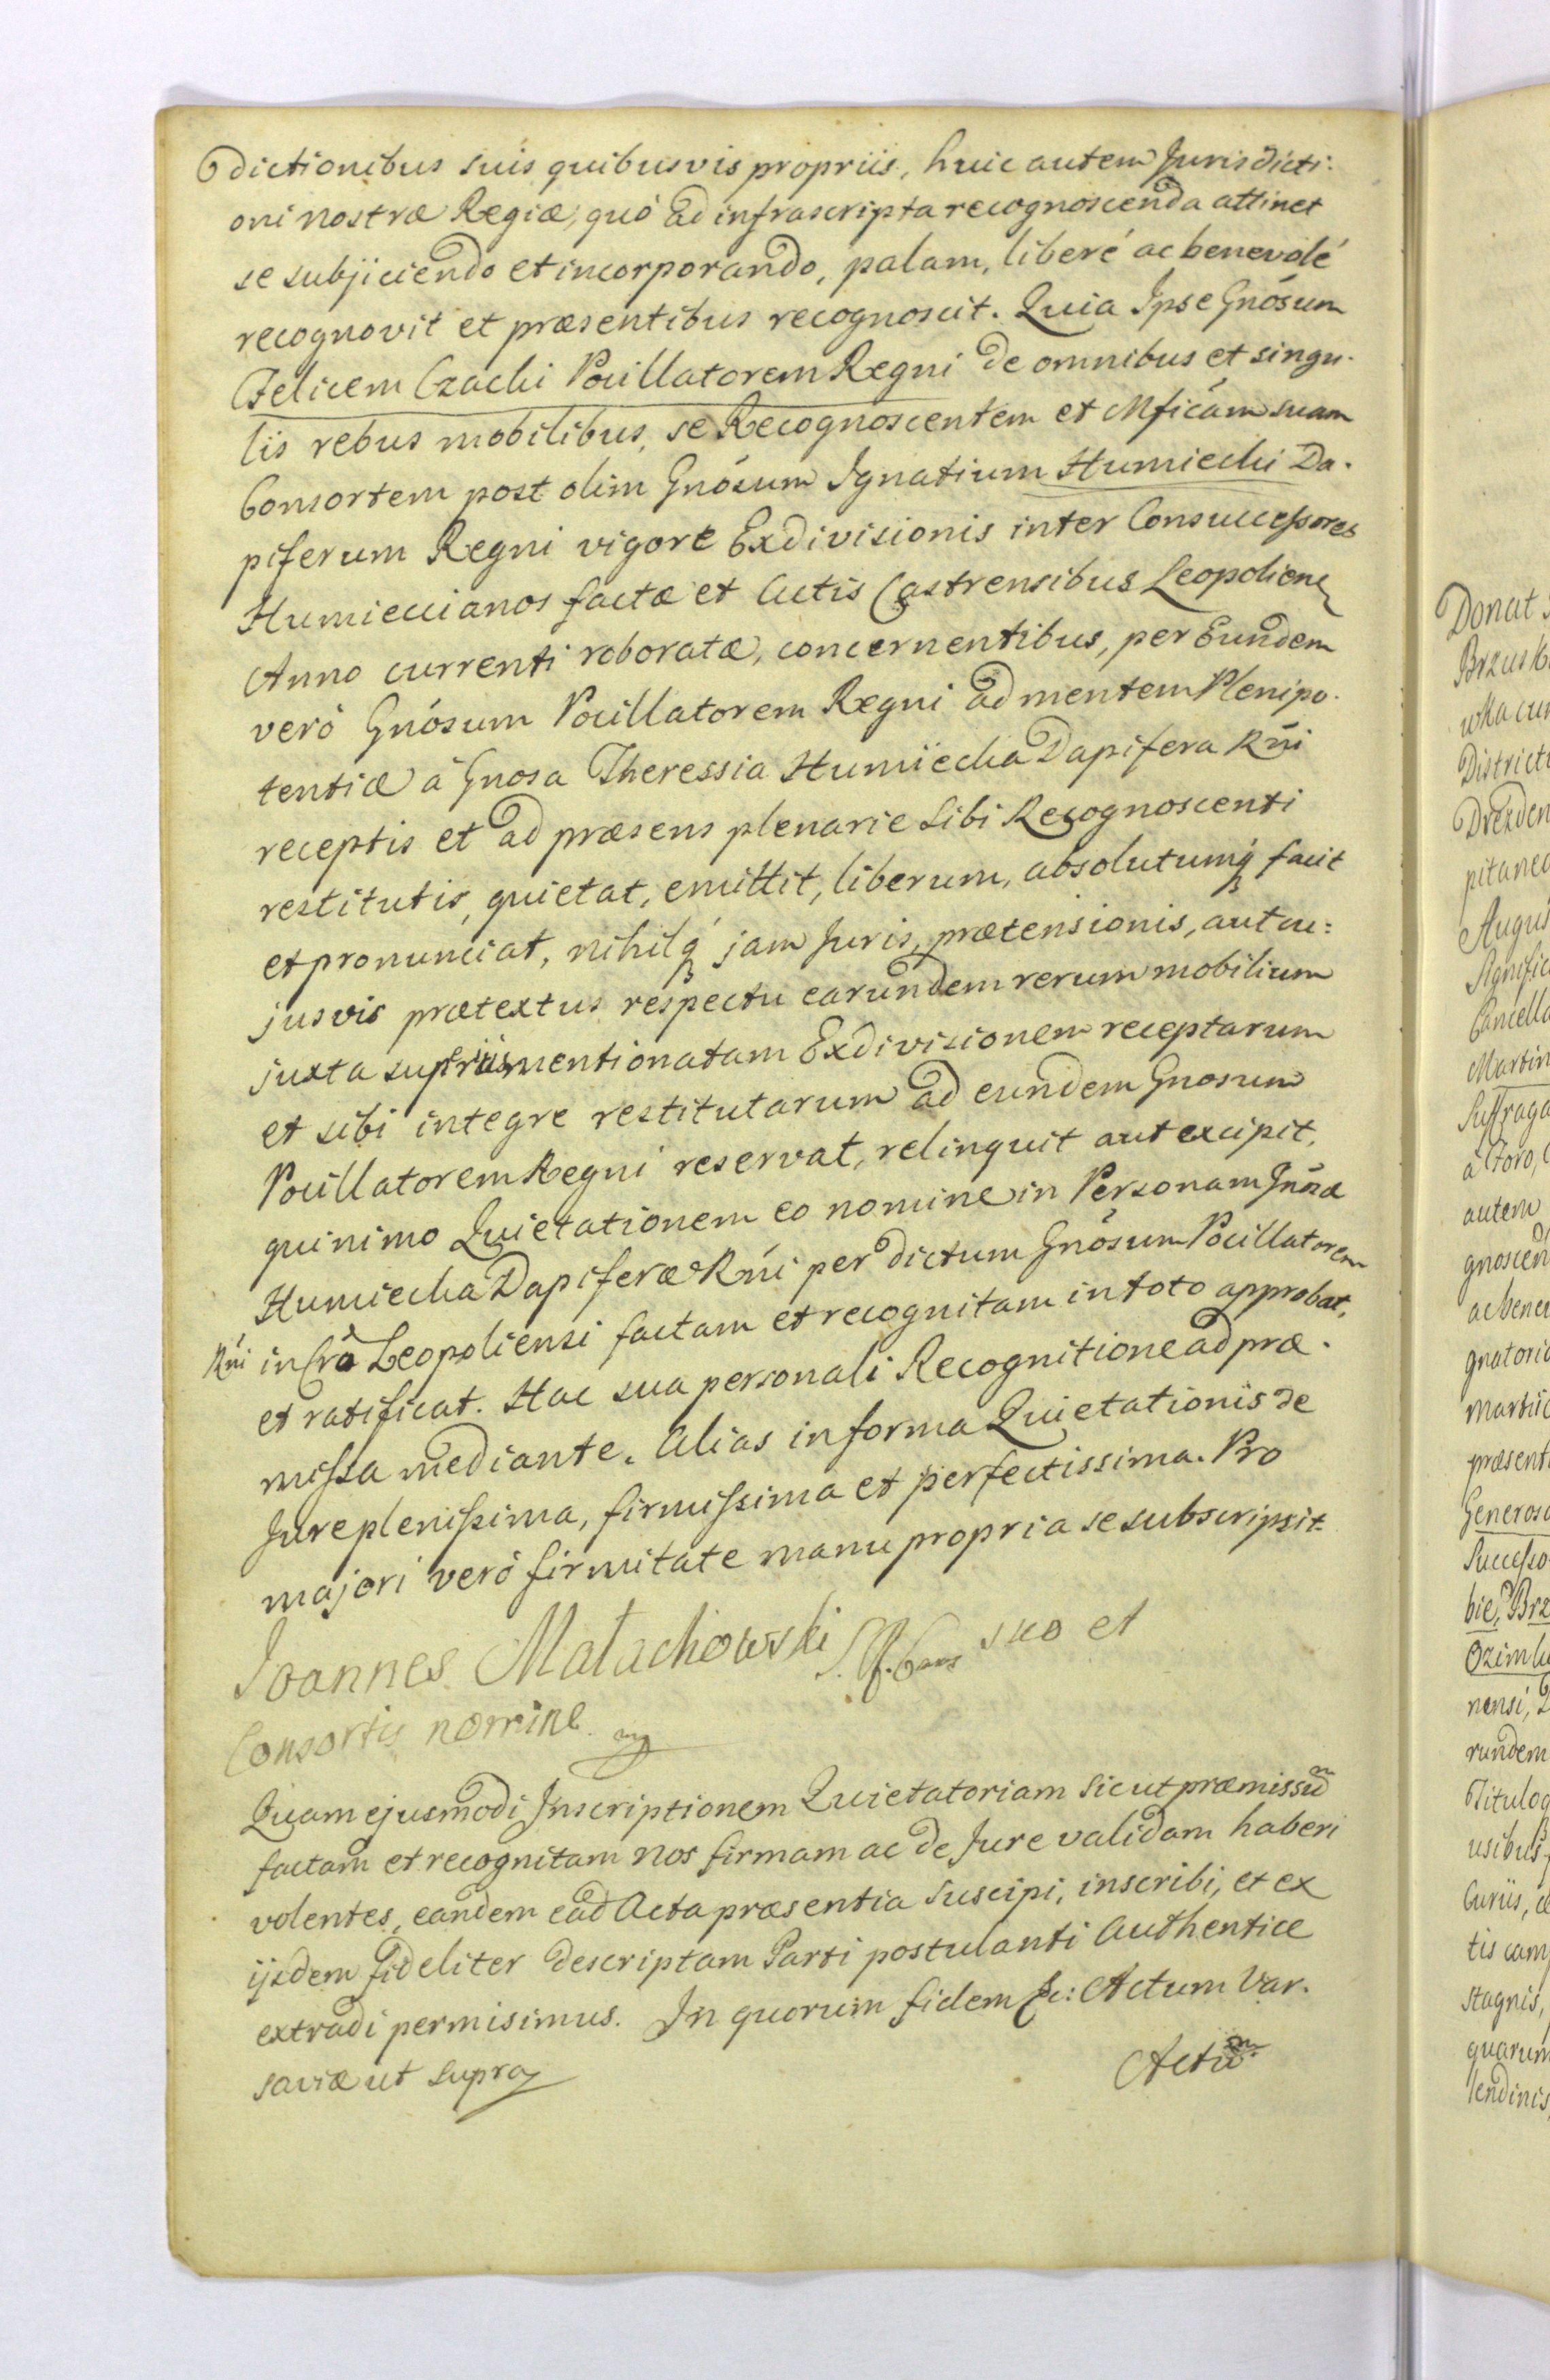 dictionibus suis quibusvis propriis, huic autem Jurisdicti:
oni nostræ Regiæ, quò ad infrascripta recognoscenda attinet
se subjiciendo et incorporando, palam, liberé ac benevolé
recognovit et præsentibus recognoscit. Quia Ipse Gnósum
Felicem Czacki Pocillatorem Regni de omnibus et singu-
lis rebus mobilibus, se Recognoscentem et Mficám suam
Consortem post olim Gnósum Ignatium Humiecki Da-
piferum Regni vigore Exdivisionis inter Consuccessores
Humieccianos factæ et Actis Castrensibus Leopolien
Anno currenti roboratæ, concernentibus, per Eundem
veró Gnósum Pocillatorem Regni ad mentem Plenipo-
tentiæ á Gnosa Theressia Humiecka Dapifera Rńi
receptis et ad præsens plenarie Sibi Recognoscenti
restitutis, quietat, emittit, liberum, absolutumq facit
et pronunciat, nihilq jam Juris, prætensionis, aut cu:
jusvis prætextus respectu earundem rerum mobilium
juxta superiüs mentionatam Exdivisionem receptarum
et sibi integre restitutarum ad eundem Gnosum
Pocillatorem Regni reservat, relinquit aut excipit,
quinimo Quietationem eo nomine in Personam Gnosæ
Humiecka Dapiferæ Rńi per dictum Gnósum Pocillatorem
Rńi in Crá Leopoliensi factam et recognitam in toto approbat,
et ratificat. Hac sua personali Recognitione ad præ-
missa mediante. Alias in forma Quietationis de
Jure plenissima, firmissima et perfectissima. Pro
majori veró firmitate manu propria se subscripsit
Joannes Małachowski suo et
Consortis nomine mp
Quam ejusmodi Inscriptionem Quietatoriam sic ut præmissū
factam et recognitam nos firmam ac de Jure validam haberi
volentes, eandem ead Acta præsentia suscipi, inscribi, et ex
ijsdem fideliter descriptam Parti postulanti Authentice
extradi permisimus. In quorum fidem &c: Actum Var-
saviæ ut supra
Actū
Donat
Districti
pitanec
Augus
Cancella
Martin
Suffraga
á Foro,
autem
gnoscen
ac benev
gnatoria
martii
præsent
Generos
Successo
bie, Brz
nensi,
rundem
Titulo
usibus
Curiis,
tis cam
stagnis,
quarum